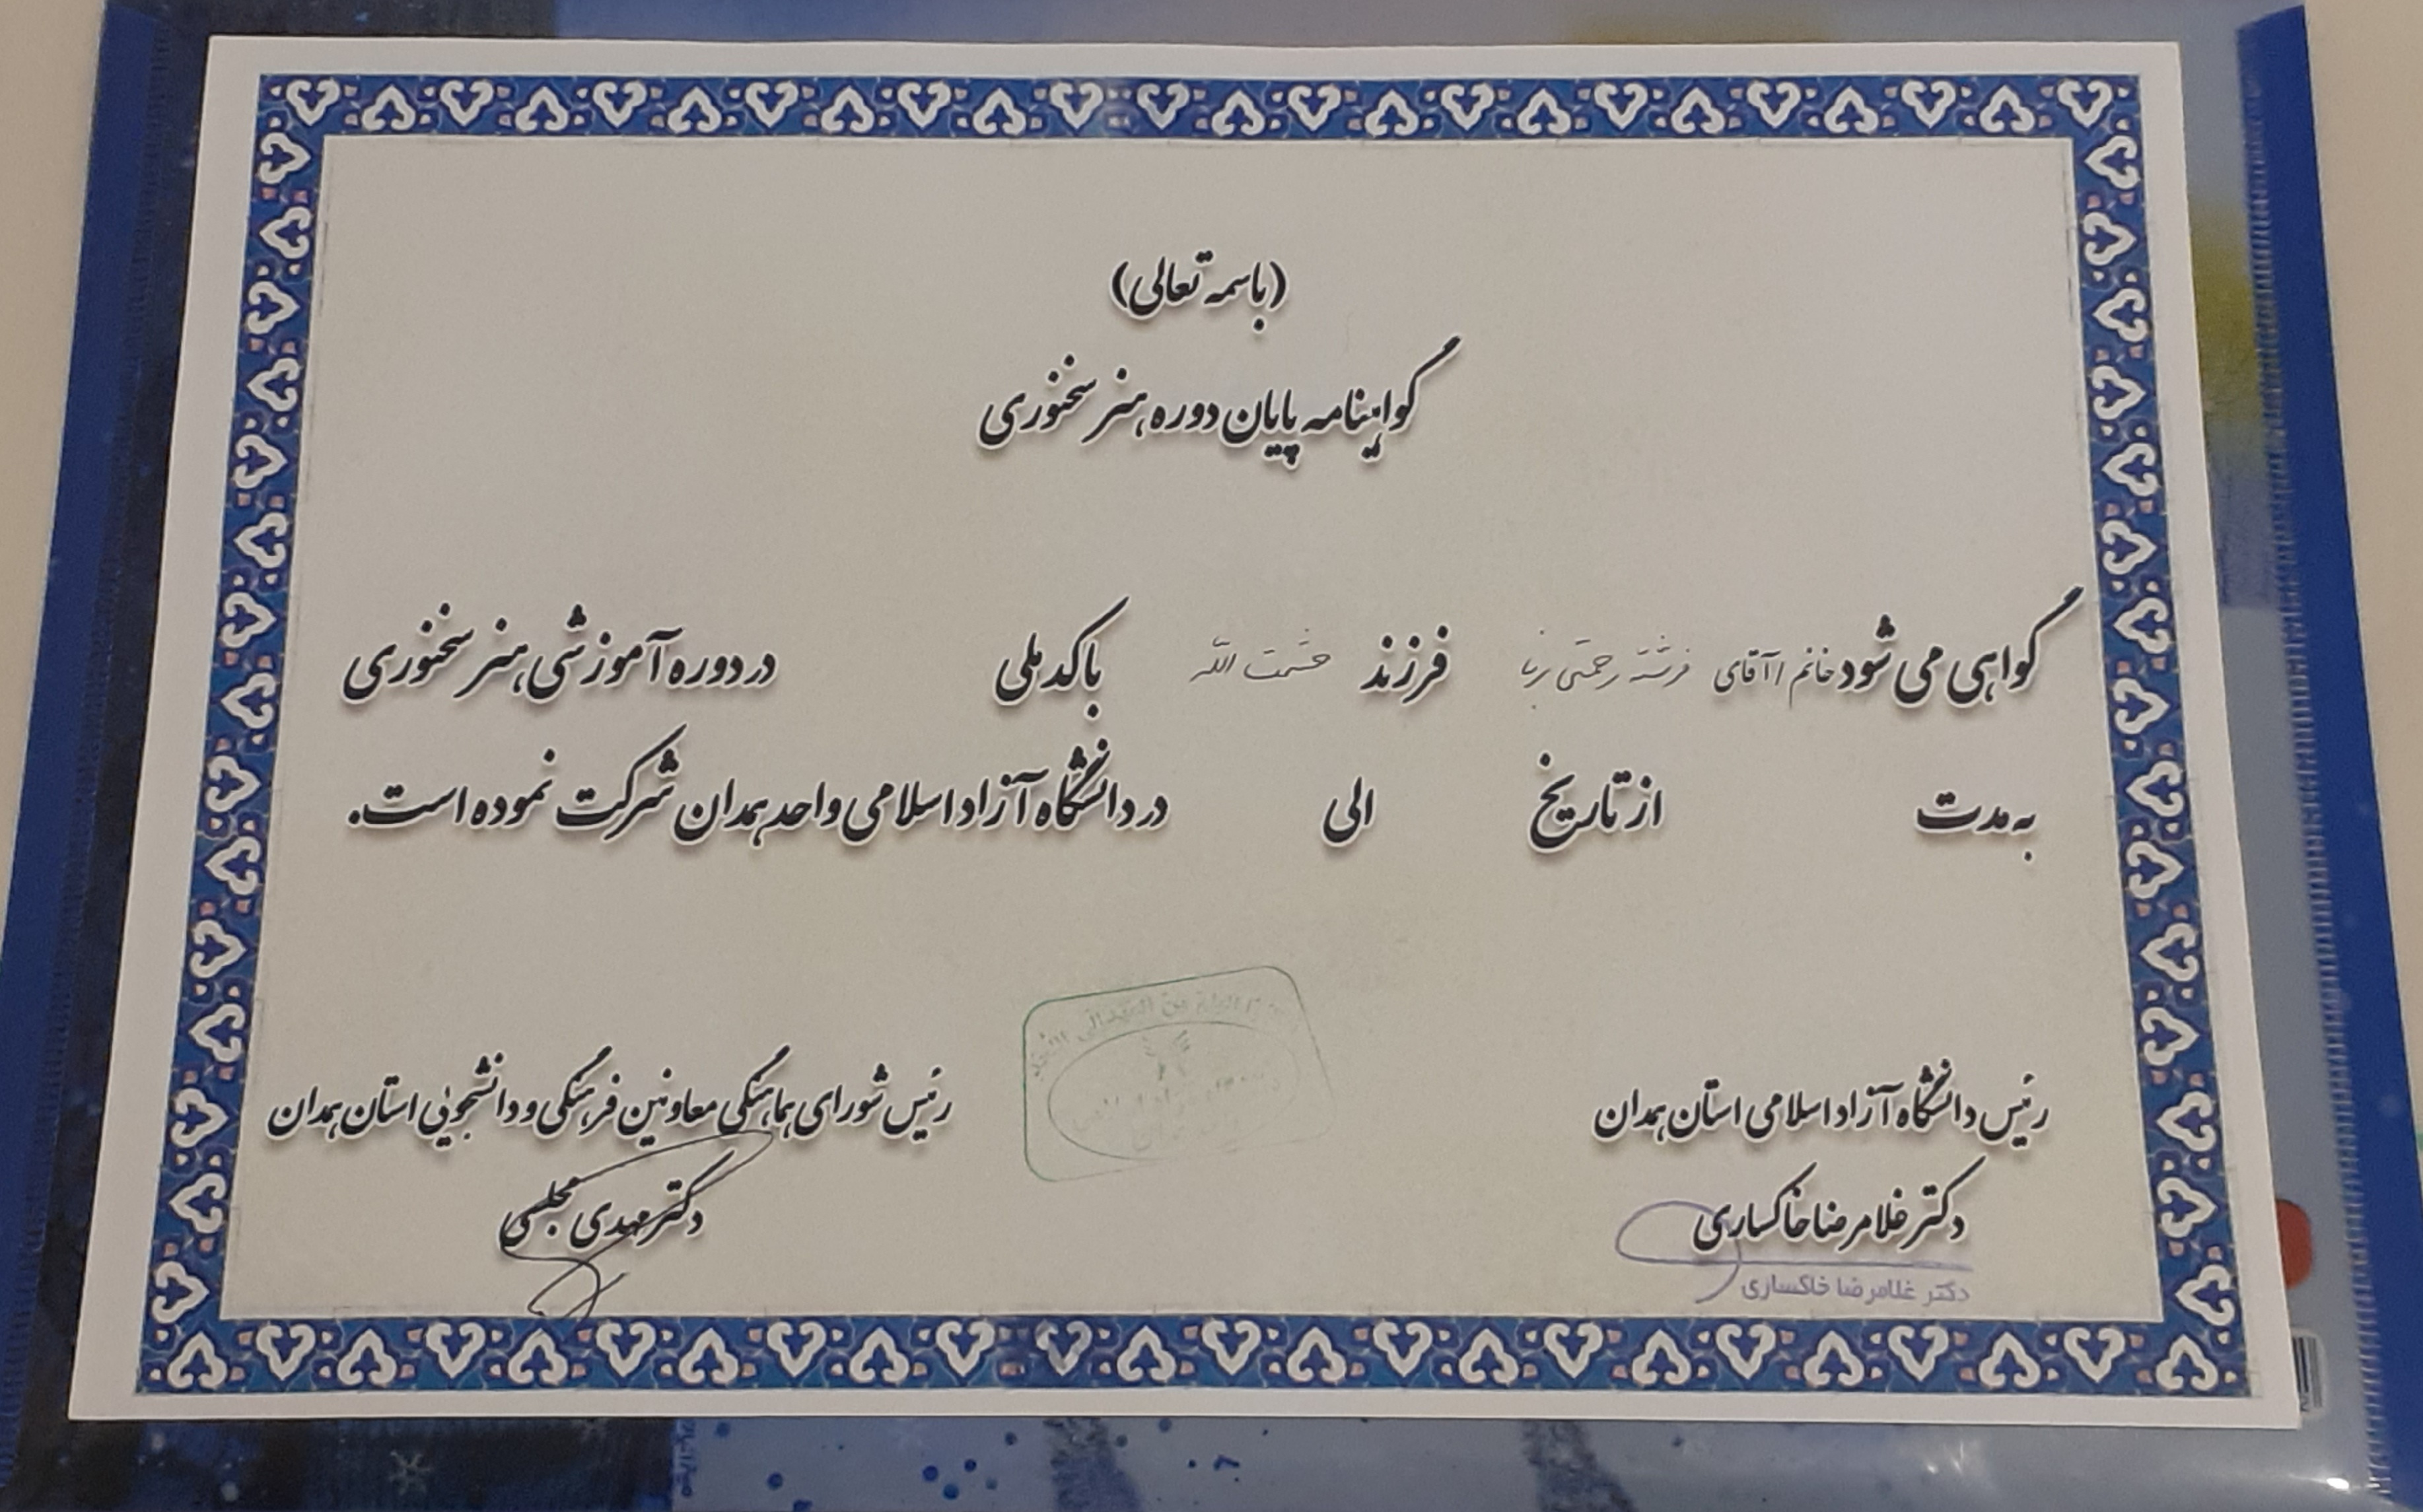 (باسمه تعالی)
گواهینامه پایان دوره هنر سخنوری
گواهی می شود خانم / آقای فرشته رحمتی فرزند حشمت الله با کد ملی در دوره آموزشی هنر سخنوری
به مدت از تاریخ الی در دانشگاه آزاد اسلامی واحد همدان شرکت نموده است.
رئیس دانشگاه آزاد اسلامی استان همدان
دکتر غلامرضا خاکساری
دکتر غلامرضا خاکساری
رئیس شورای هماهنگی معاونین فرهنگی و دانشجویی استان همدان
دکتر مهدی مجلسی